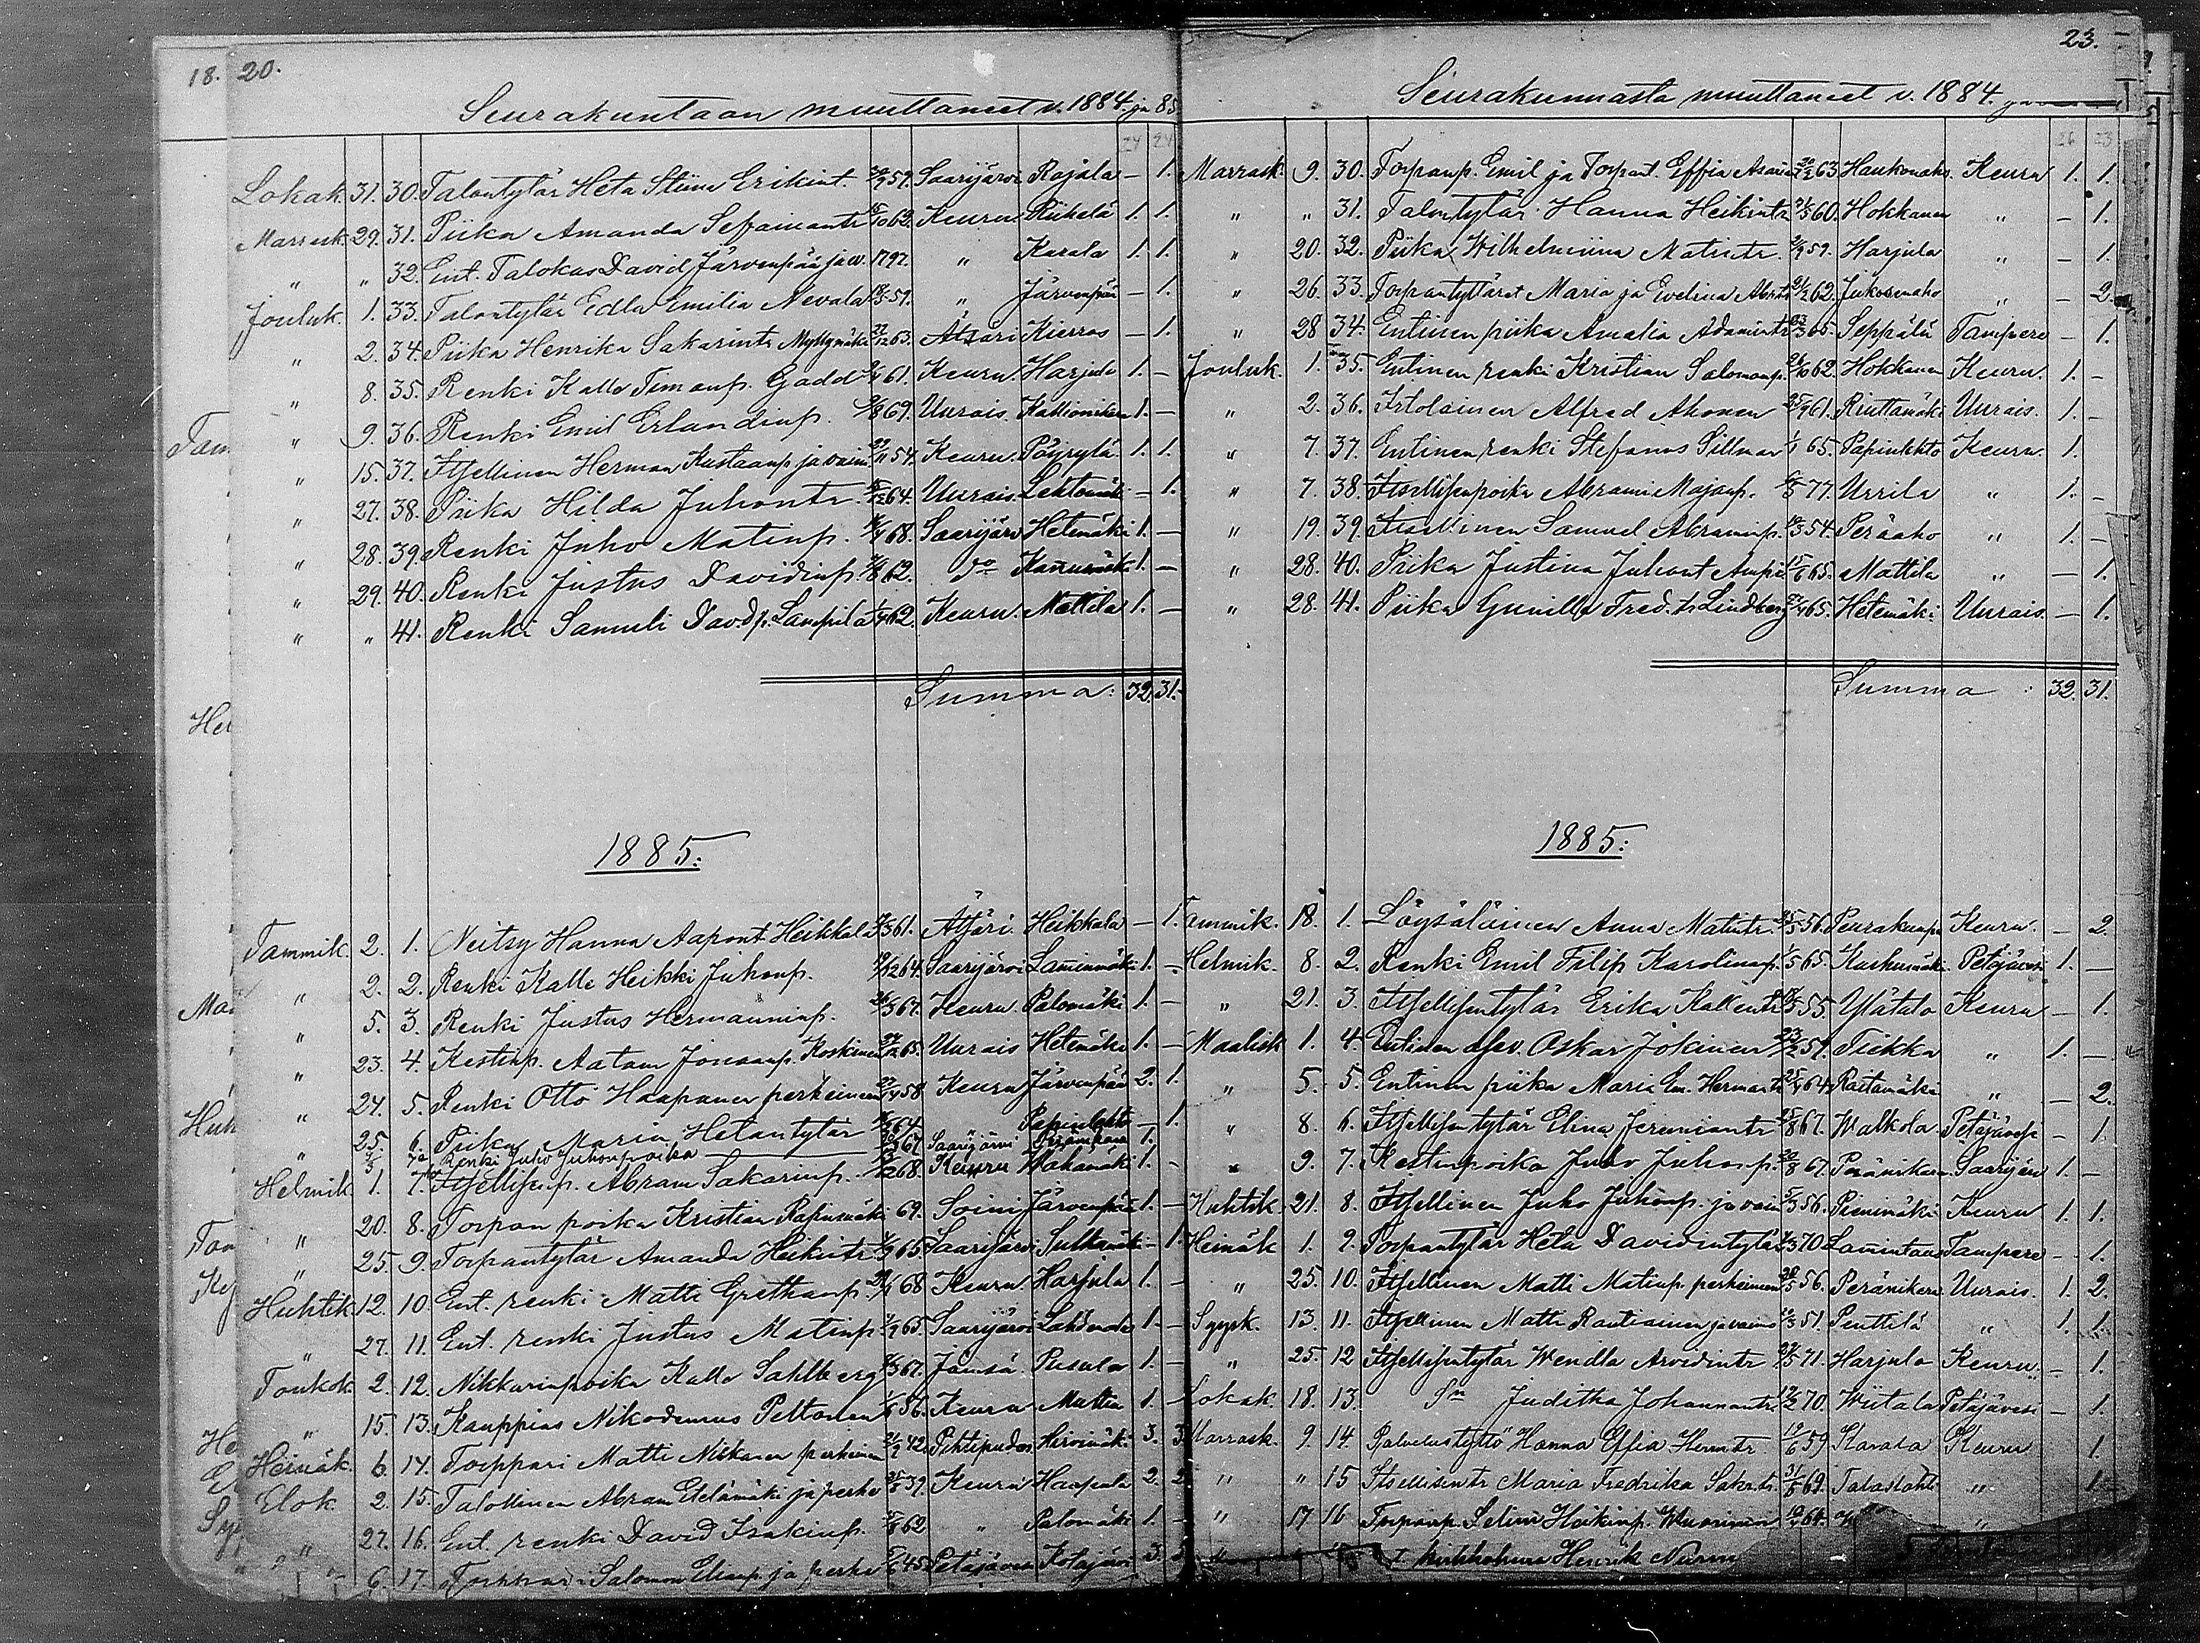 18. 20.
Seurakuntaan muuttaneet v. 1884 ja 85
24 24
Lokak. 31. 30. Talontytär Heta Stiina Erikint. 59. Saarijärvi Rajala — 1.
Marrask. 29. 31. Piika Amanda Sefaniantr 62. Keuru Riihelä 1. 1.
" " 32. Ent. Talokas David Järvenpää ja v. 1797. " Karala 1. 1.
Jouluk. 1. 33. Talontytär Edla Emilia Nevala 59. " Järvenpää — 1.
" 2. 34. Piika Henrika Sakarintr Myllymäki 63. Ätsäri Kierros — 1.
" 8. 35. Renki Kalle Gadd 61. Keuru Harjula 1. —
" 9. 36. Renki Emil Erlandinp. 69. Uurais. 1. —
" 15. 37. Itsellinen Herman Kustaanp ja vaim 54. Keuru. Pöyrylä 1. 1.
" 27. 38. Piika Hilda Juhontr. 64. Uurais. Lehtomäki — 1.
" 28. 39. Renki Juho Matinp. 68. Saarijärvi Hetemäki 1. —
" 29. 40. Renki Justus Davidinp. 62. do 1. —
" " 41. Renki Samuli Davdp. Lampila 62. Keuru. Mattila 1. —
Summa: 32. 31.
1885.
Tammik. 2. 1. Neitsy Hanna Aapont Heikkala 61. Ätsäri. Heikkala — 1.
" 2. 2. Renki Kalle Heikki Juhonp. 64. Saarijärvi 1. —
" 5. 3. Renki Justus Hermanninp. 67. Keuru. Palomäki 1. —
" 23. 4. Kestinp. Aatam Joonaanp. Koskinen 65. Uurais Hetemäki 1. —
" 24. 5. Renki Otto Haapanen perheineen 58 Keuru Järvenpää 2. 1.
" 25. 6. Piika Maria Hetantytär 64. " Papinlahto — 1.
Renki Juho Juhonpoika 67. Saarijärvi 1.
Helmik. 1. 7. Itsellisenp. Abram Sakarinp. 68. Keuru 1. —
" 20. 8. Torpan poika Kristian 69. Soini Järvenpää 1. —
" 25. 9. Torpantytär Amanda Heikintr. 65. Saarijärvi — 1.
Huhtik. 12. 10. Ent. renki Matti Grethanp. 68 Keuru. Harjula 1. —
" 27. 11. Ent. renki Justus Matinp. 65. Saarijärvi 1. —
Toukok. 2. 12. Nikkarinpoika Kalle Sahlberg 67. Jämsä. Pusula 1. —
" 15. 13. Kauppias Nikodemus Peltonen 56. Keuru 1. —
Heinäk. 6. 14. Torppari Matti perheineen 42. Pihtipudas. Hirvimäki 3. 3.
Elok. 2. 15. Talollinen Abram Etelämäki ja perhe 39. Keuru Haapala 2. 2.
" 27. 16. Ent. renki David Isakinp. 62 " Palomäki 1. —
6. 17. Torppari Salomon Elianp. ja perhe 45. Petäjävesi 3.
23.
Seurakunnasta muuttaneet v. 1884.
26 23
Marrask. 9. 30. Torpanp. Emil ja Torpant. Effia 63. Haukomaho Keuru 1. 1.
" " 31. Talontytär Hanna Heikintr. 60. Hokkanen " — 1.
" 20. 32. Piika Wilhelmiina Matintr. 59. Harjula " — 1.
" 26. 33. Torpantyttäret Maria ja Evelina 62. " — 2.
" 28 34. Entinen piika Amalia Adamintr. 65. Seppälä Tampere — 1.
Jouluk. 1. 35. Entinen renki Kristian Salomonp. 62. Hokkanen Keuru. 1. —
" 2. 36. Irtolainen Alfred Ahonen 61. Riuttamäki Uurais. 1. —
" 7. 37. Entinen renki Stefanus Sillman 65. Papinlehto Keuru. 1.
" 7. 38. Itsellisenpoika Abrami Majanp. 77. Urrila " 1. —
" 19. 39. Itsellinen Samuel Abraminp. 54. Peräaho " 1. —
" 28. 40. Piika Justina Juhont 65. Mattila " — 1.
" 28. 41. Piika Gunilla Fred. tr Lindberg 65. Hetemäki Uurais. — 1.
Summa: 32. 31.
1885:
Tammik. 18. 1. Löysäläinen Anna Matintr. 56. Keuru. — 2.
Helmik. 8. 2. Renki Emil Filip Karolinap. 65. Petäjävesi 1. —
" 21. 3. Itsellisentytär Erika Kallentr. 55. Ylätalo Keuru — 1.
Maalisk. 1. 4. Entinen Oskar Jokinen 51. Tiekka " 1. —
" 5. 5. Entinen piika Maria Em. Hermantr. 64. Rastamäki " — 2.
" 8. 6. Itsellisentytär Elina Jeremiantr 67. Walkola Petäjävesi — 1.
" 9. 7. Kestinpoika Juho Juhonp. 67. Saarijärvi 1. —
Huhtik. 21. 8. Itsellinen Juho Juhonp. ja vaim 56. Pienimäki Keuru 1. 1.
Heinäk. 1. 9. Torpantytär Heta Davidintytär 70. Tampere — 1.
" 25. 10. Itsellinen Matti Matinp. perheineen 56. Uurais. 1. 2.
Syysk. 13. 11. Itsellinen Matti Rautiainen ja vaimo 51. Penttilä " 1. 1.
" 25. 12 Itsellisentytär Wendla Arvidintr 71. Harjula Keuru — 1.
Lokak. 18. 13. Sn Juditha Johannantr. 70. Wiitala Petäjävesi — 1.
Marrask. 9. 14. Palvelustyttö Hanna Effia Hermtr. 59 Keuru 1.
" " 15 Itsellisentr Maria Fredrika Sakartr. 69. " 1.
" 17 16 Torpanp. Selim Heikinp. Wuorinen 64. "
" Henrik